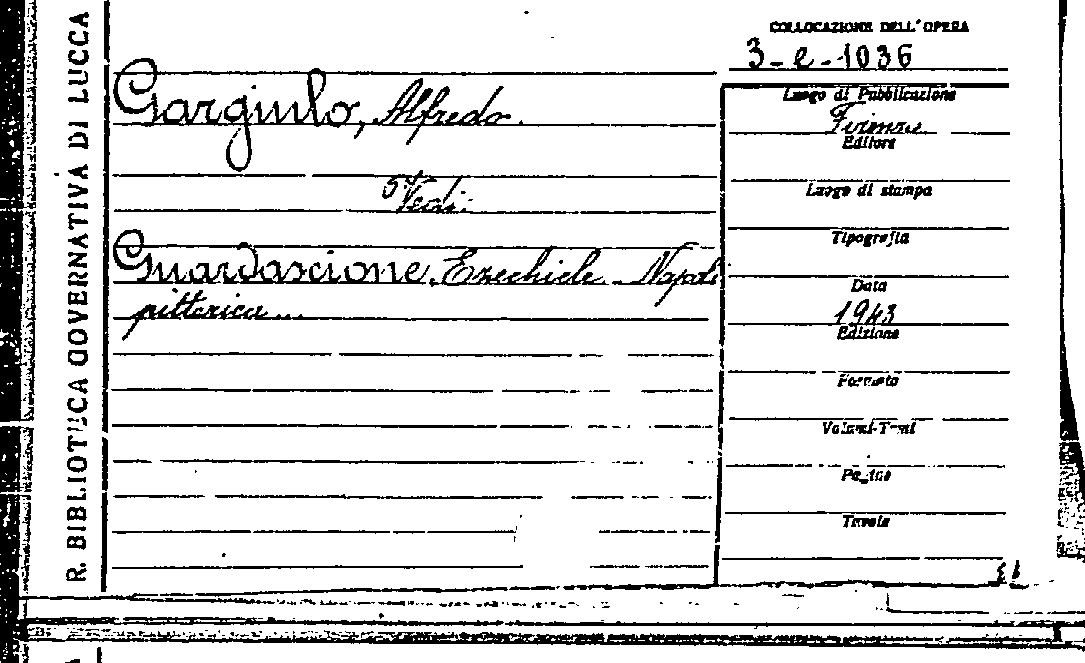 R. BIBLIOTECA GOVERNATIVA DI LUCCA
COLLOCAZIONE DELL'OPERA
3-e-1036
Gargiulo, Alfredo.
Vedi:
Guardascione, Ezechiele - Napoli
pittorica ...
Luogo di Pubblicazione
Firenze
Editore
Luogo di stampa
Tipografia
Data
1943
Edizione
Formato
Volumi-Tomi
Pagine
Tavole